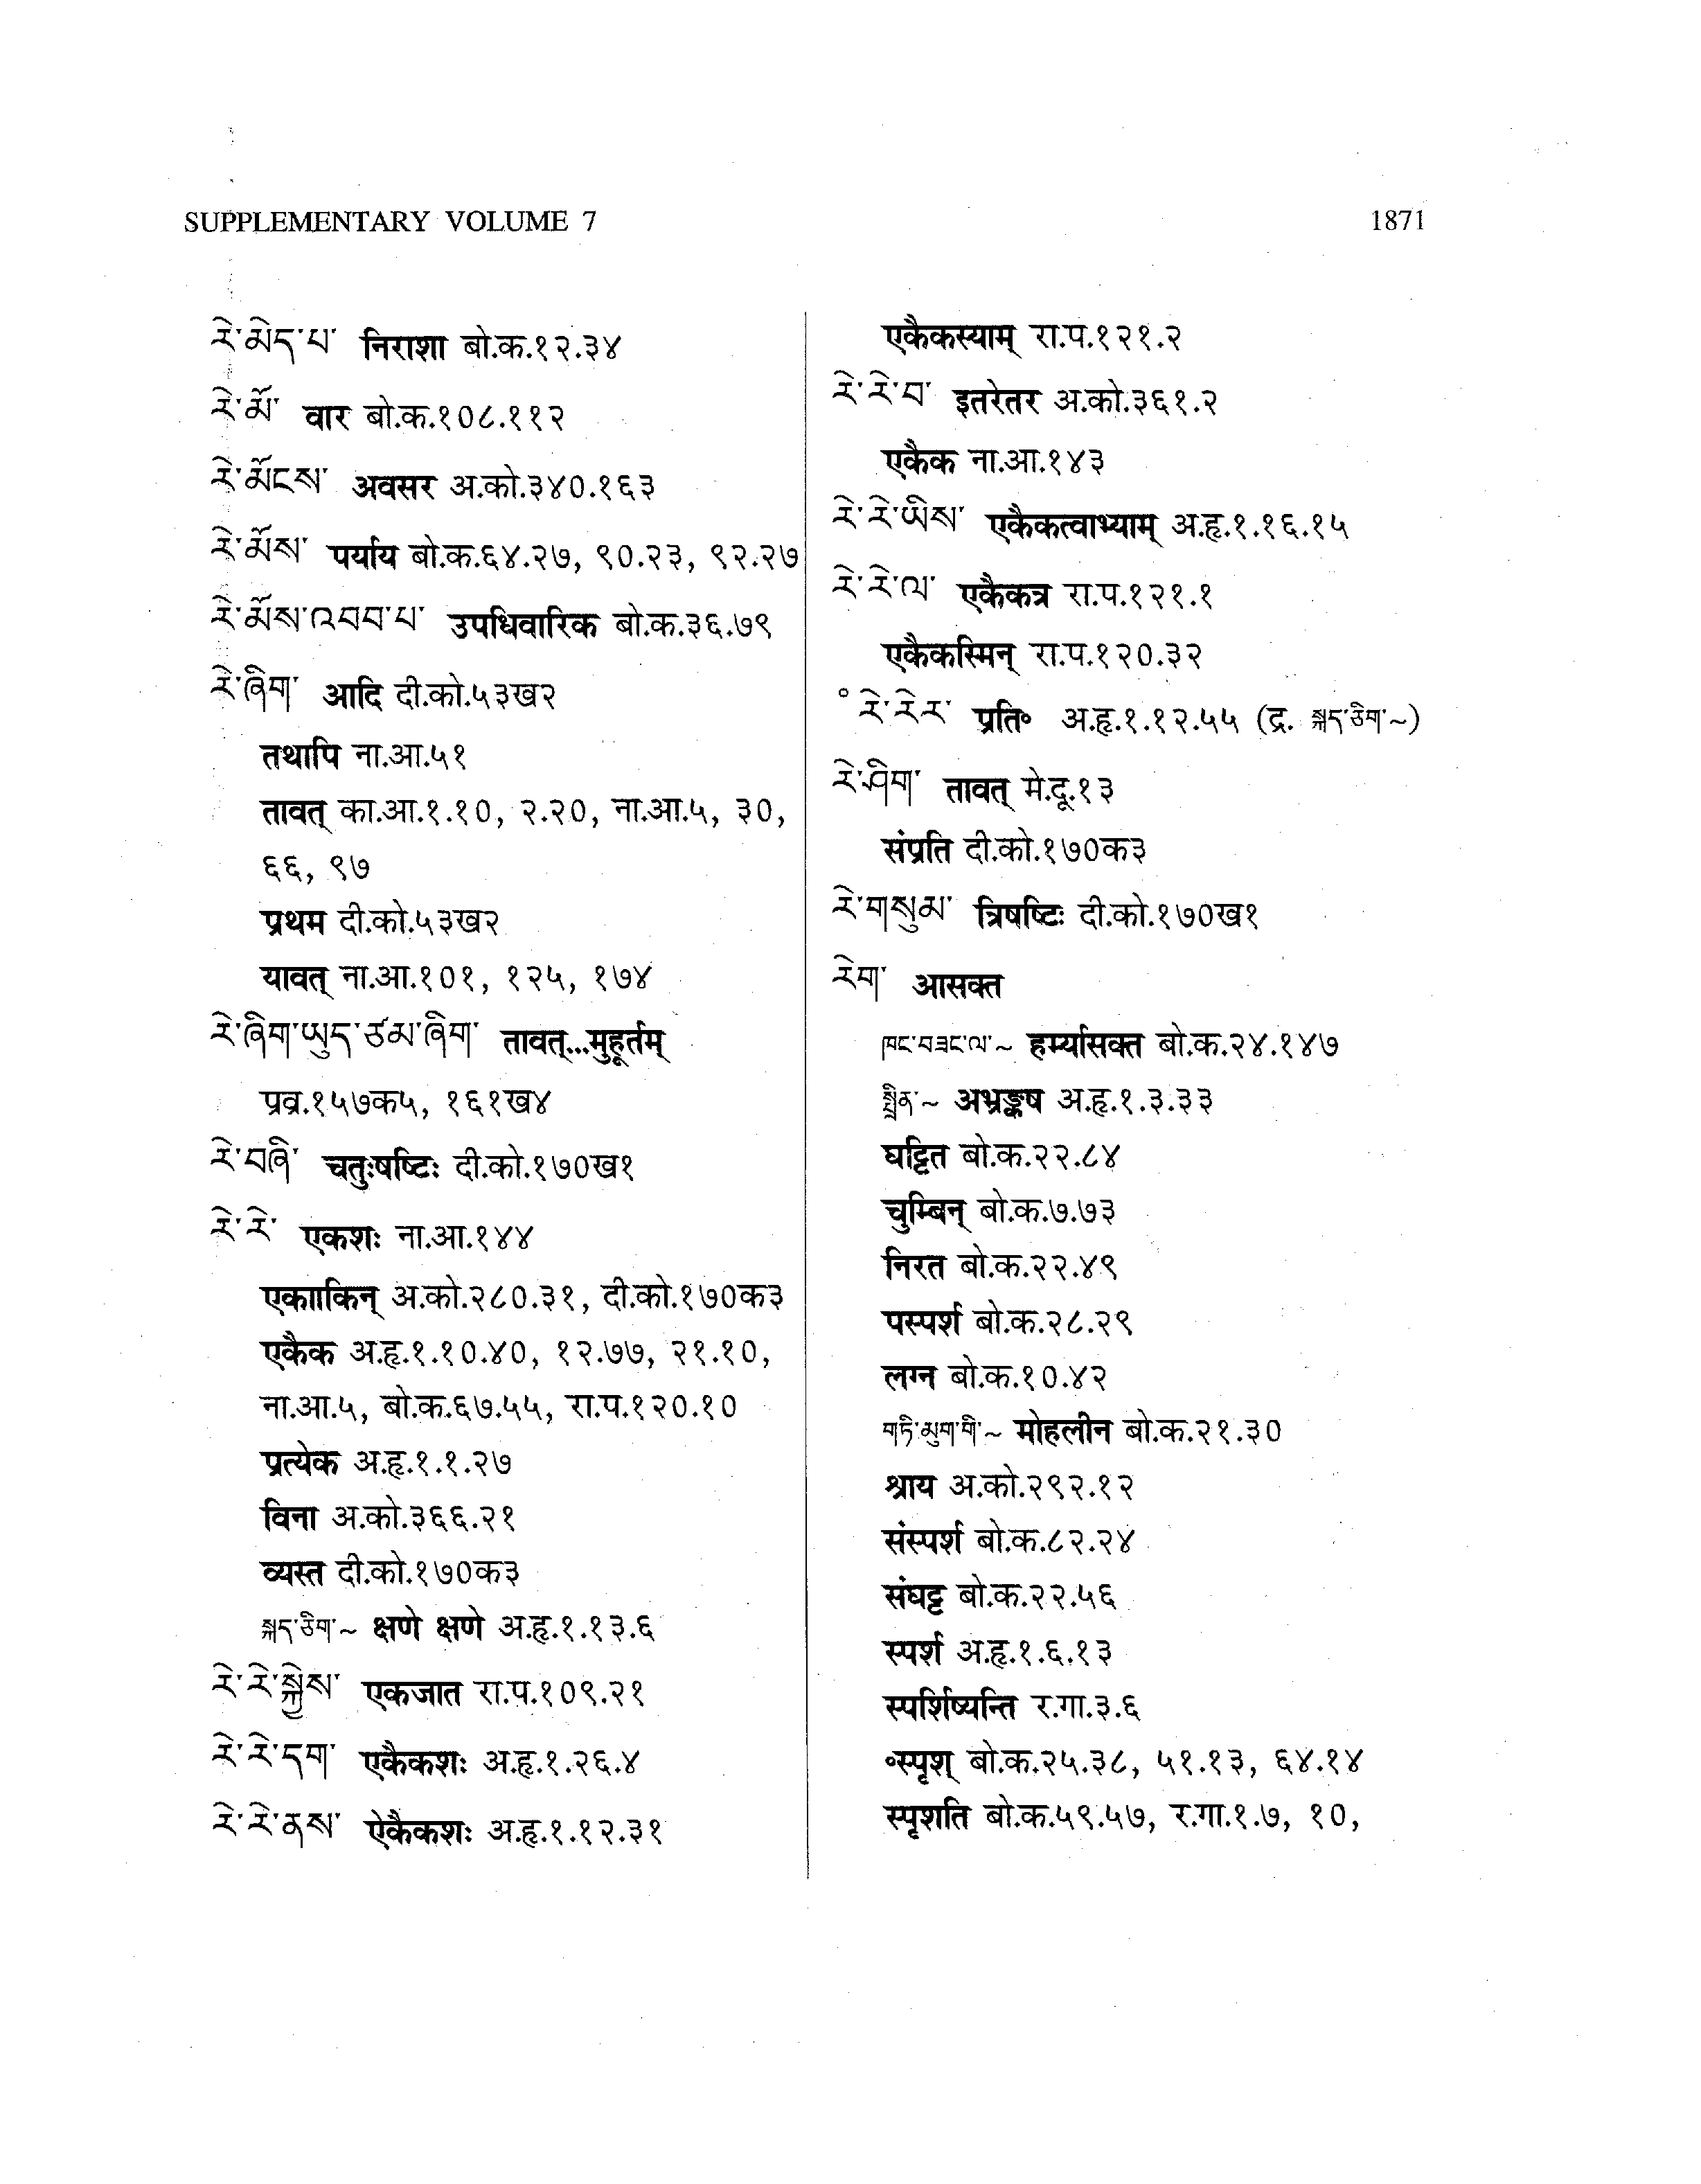 SUPPLEMENTARY VOLUME 7 1871
རེ་མེད་པ་ निराशा बो.क.१२.३४
རེ་མོ་ वार बो.क.१०८.११२
རེ་མོངས་ अवसर अ.को.३४०.१६३
རེ་མོས་ पर्याय बो.क.६४.२७, ९०.२३, ९२.२७
རེ་མོས་འབབ་པ་ उपधिवारिक बो.क.३६.७९
རེ་ཞིག་ आदि दी.को.५३ख२
तथापि ना.आ.५१
तावत् का.आ.१.१०, २.२०, ना.आ.५, ३०,
६६, ९७
प्रथम दी.को.५३ख२
यावत् ना.आ.१०१, १२५, १७४
རེ་ཞིག་ཡུད་ཙམ་ཞིག་ तावत्...मुहूर्तम्
प्रव्र.१५७क५, १६१ख४
རེ་བཞི་ चतुःषष्टिः दी.को.१७०ख१
རེ་རེ་ एकशः ना.आ.१४४
एकााकिन् अ.को.२८०.३१, दी.को.१७०क३
एकैक अ.हृ.१.१०.४०, १२.७७, २१.१०,
ना.आ.५, बो.क.६७.५५, रा.प.१२०.१०
प्रत्येक अ.हृ.१.१.२७
विना अ.को.३६६.२१
व्यस्त दी.को.१७०क३
སྐད་ཅིག་~ क्षणे क्षणे अ.हृ.१.१३.६
རེ་རེ་སྐྱེས་ एकजात रा.प.१०९.२१
རེ་རེ་དག་ एकैकशः अ.हृ.१.२६.४
རེ་རེ་ནས་ ऐकैकशः अ.हृ.१.१२.३१
एकैकस्याम् रा.प.१२१.२
རེ་རེ་བ་ इतरेतर अ.को.३६१.२
एकैक ना.आ.१४३
རེ་རེ་ཡིས་ एकैकत्वाभ्याम् अ.हृ.१.१६.१५
རེ་རེ་ལ་ एकैकत्र रा.प.१२१.१
एकैकस्मिन् रा.प.१२०.३२
°རེ་རེར་ प्रति॰ अ.हृ.१.१२.५५ (द्र. སྐད་ཅིག་~)
རེ་ཤིག་ तावत् मे.दू.१३
संप्रति दी.को.१७०क३
རེ་གསུམ་ त्रिषष्टिः दी.को.१७०ख१
རེག་ आसक्त
ཁང་བཟང་ལ་~ हर्म्यासक्त बो.क.२४.१४७
སྤྲིན་~ अभ्रङ्कष अ.हृ.१.३.३३
घट्टित बो.क.२२.८४
चुम्बिन् बो.क.७.७३
निरत बो.क.२२.४९
पस्पर्श बो.क.२८.२९
लग्न बो.क.१०.४२
གཏི་མུག་གི་~ मोहलीन बो.क.२१.३०
श्राय अ.को.२९२.१२
संस्पर्श बो.क.८२.२४
संघट्ट बो.क.२२.५६
स्पर्श अ.हृ.१.६.१३
स्पर्शिष्यन्ति र.गा.३.६
॰स्पृश् बो.क.२५.३८, ५१.१३, ६४.१४
स्पृशति बो.क.५९.५७, र.गा.१.७, १०,